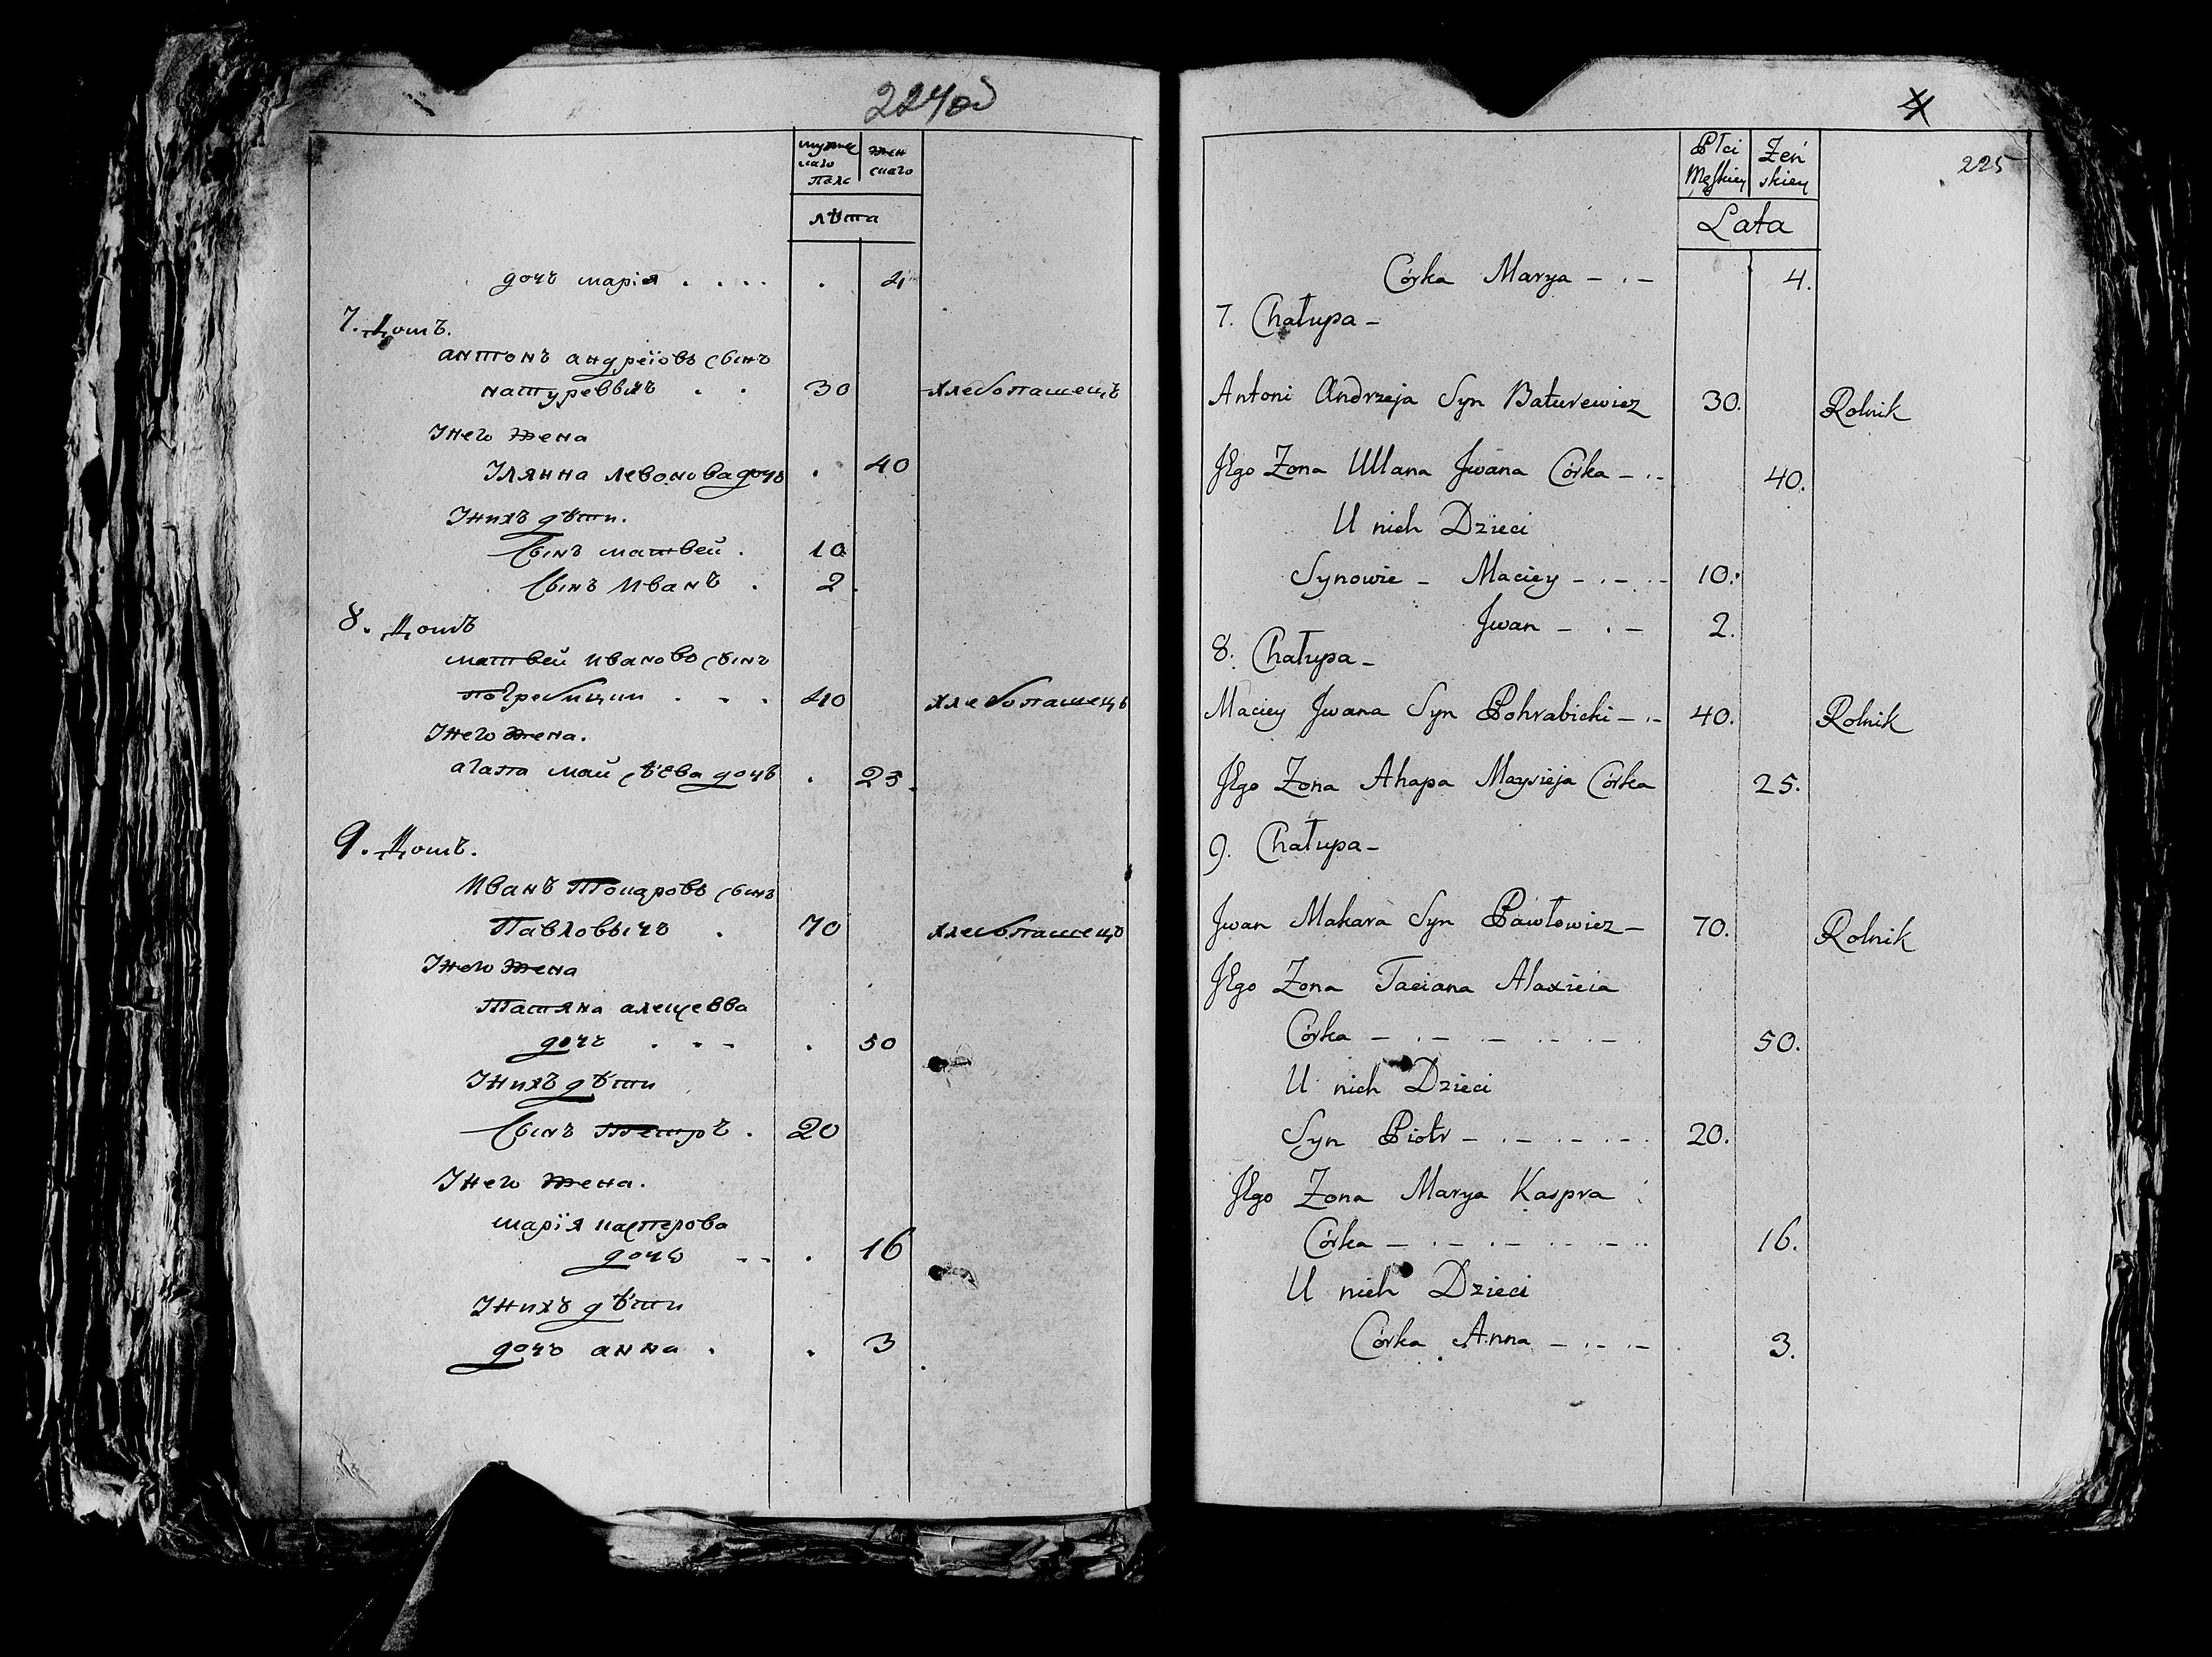 224об
мужес
каго
пола
жен
скаго
лѣта
дочъ марія . . . . . 4
7. Домъ.
антонъ андреїовъ сынъ
натуреввичъ . . 30 хлебопашецъ
Унего жена
Улянна левонова дочъ . 40
Унихъ дѣти.
Сынъ матвей . 10
Сынъ Иванъ . 2
8. Домъ
матвей Ивановъ сынъ
погребицки . . . 40 хлебопашецъ
Унего жена.
агапа май сѣева дочъ . 25
9. Домъ.
Иванъ Мокаровъ сынъ
Павловычъ . 70 хлебопашецъ
Унего жена
Татяна алецевва
дочъ . . . . 50
Унихъ дѣти
Сынъ Петръ . 20
Унего жена.
марїя касперова
дочъ . 16
Унихъ дѣти
дочъ анна . . 3
4
225
Płci
Męskiey
Żeń
skiey
Lata
Córka Marya - . - 4.
7. Chałupa -
Antoni Andrzeja Syn Baturewicz 30. Rolnik
Jego Zona Ullana Jwana Córka - . - 40.
U nich Dzieci
Synowie - Maciey - . - 10.
Jwan - . - 2.
8. Chałupa -
Maciey Jwana Syn Pohrabicki - . - 40. Rolnik
Jego Zona Ahapa Maysieja Córka 25.
9. Chałupa -
Jwan Makara Syn Pawłowicz - 70. Rolnik
Jego Zona Taciana Alaxieia
Córka - . - . - . - 50.
U nich Dzieci
Syn Piotr - . - . - . - 20.
Jego Zona Marya Kaspra
Córka - . - . - . - 16.
U nich Dzieci
Córka Anna - . - . - 3.